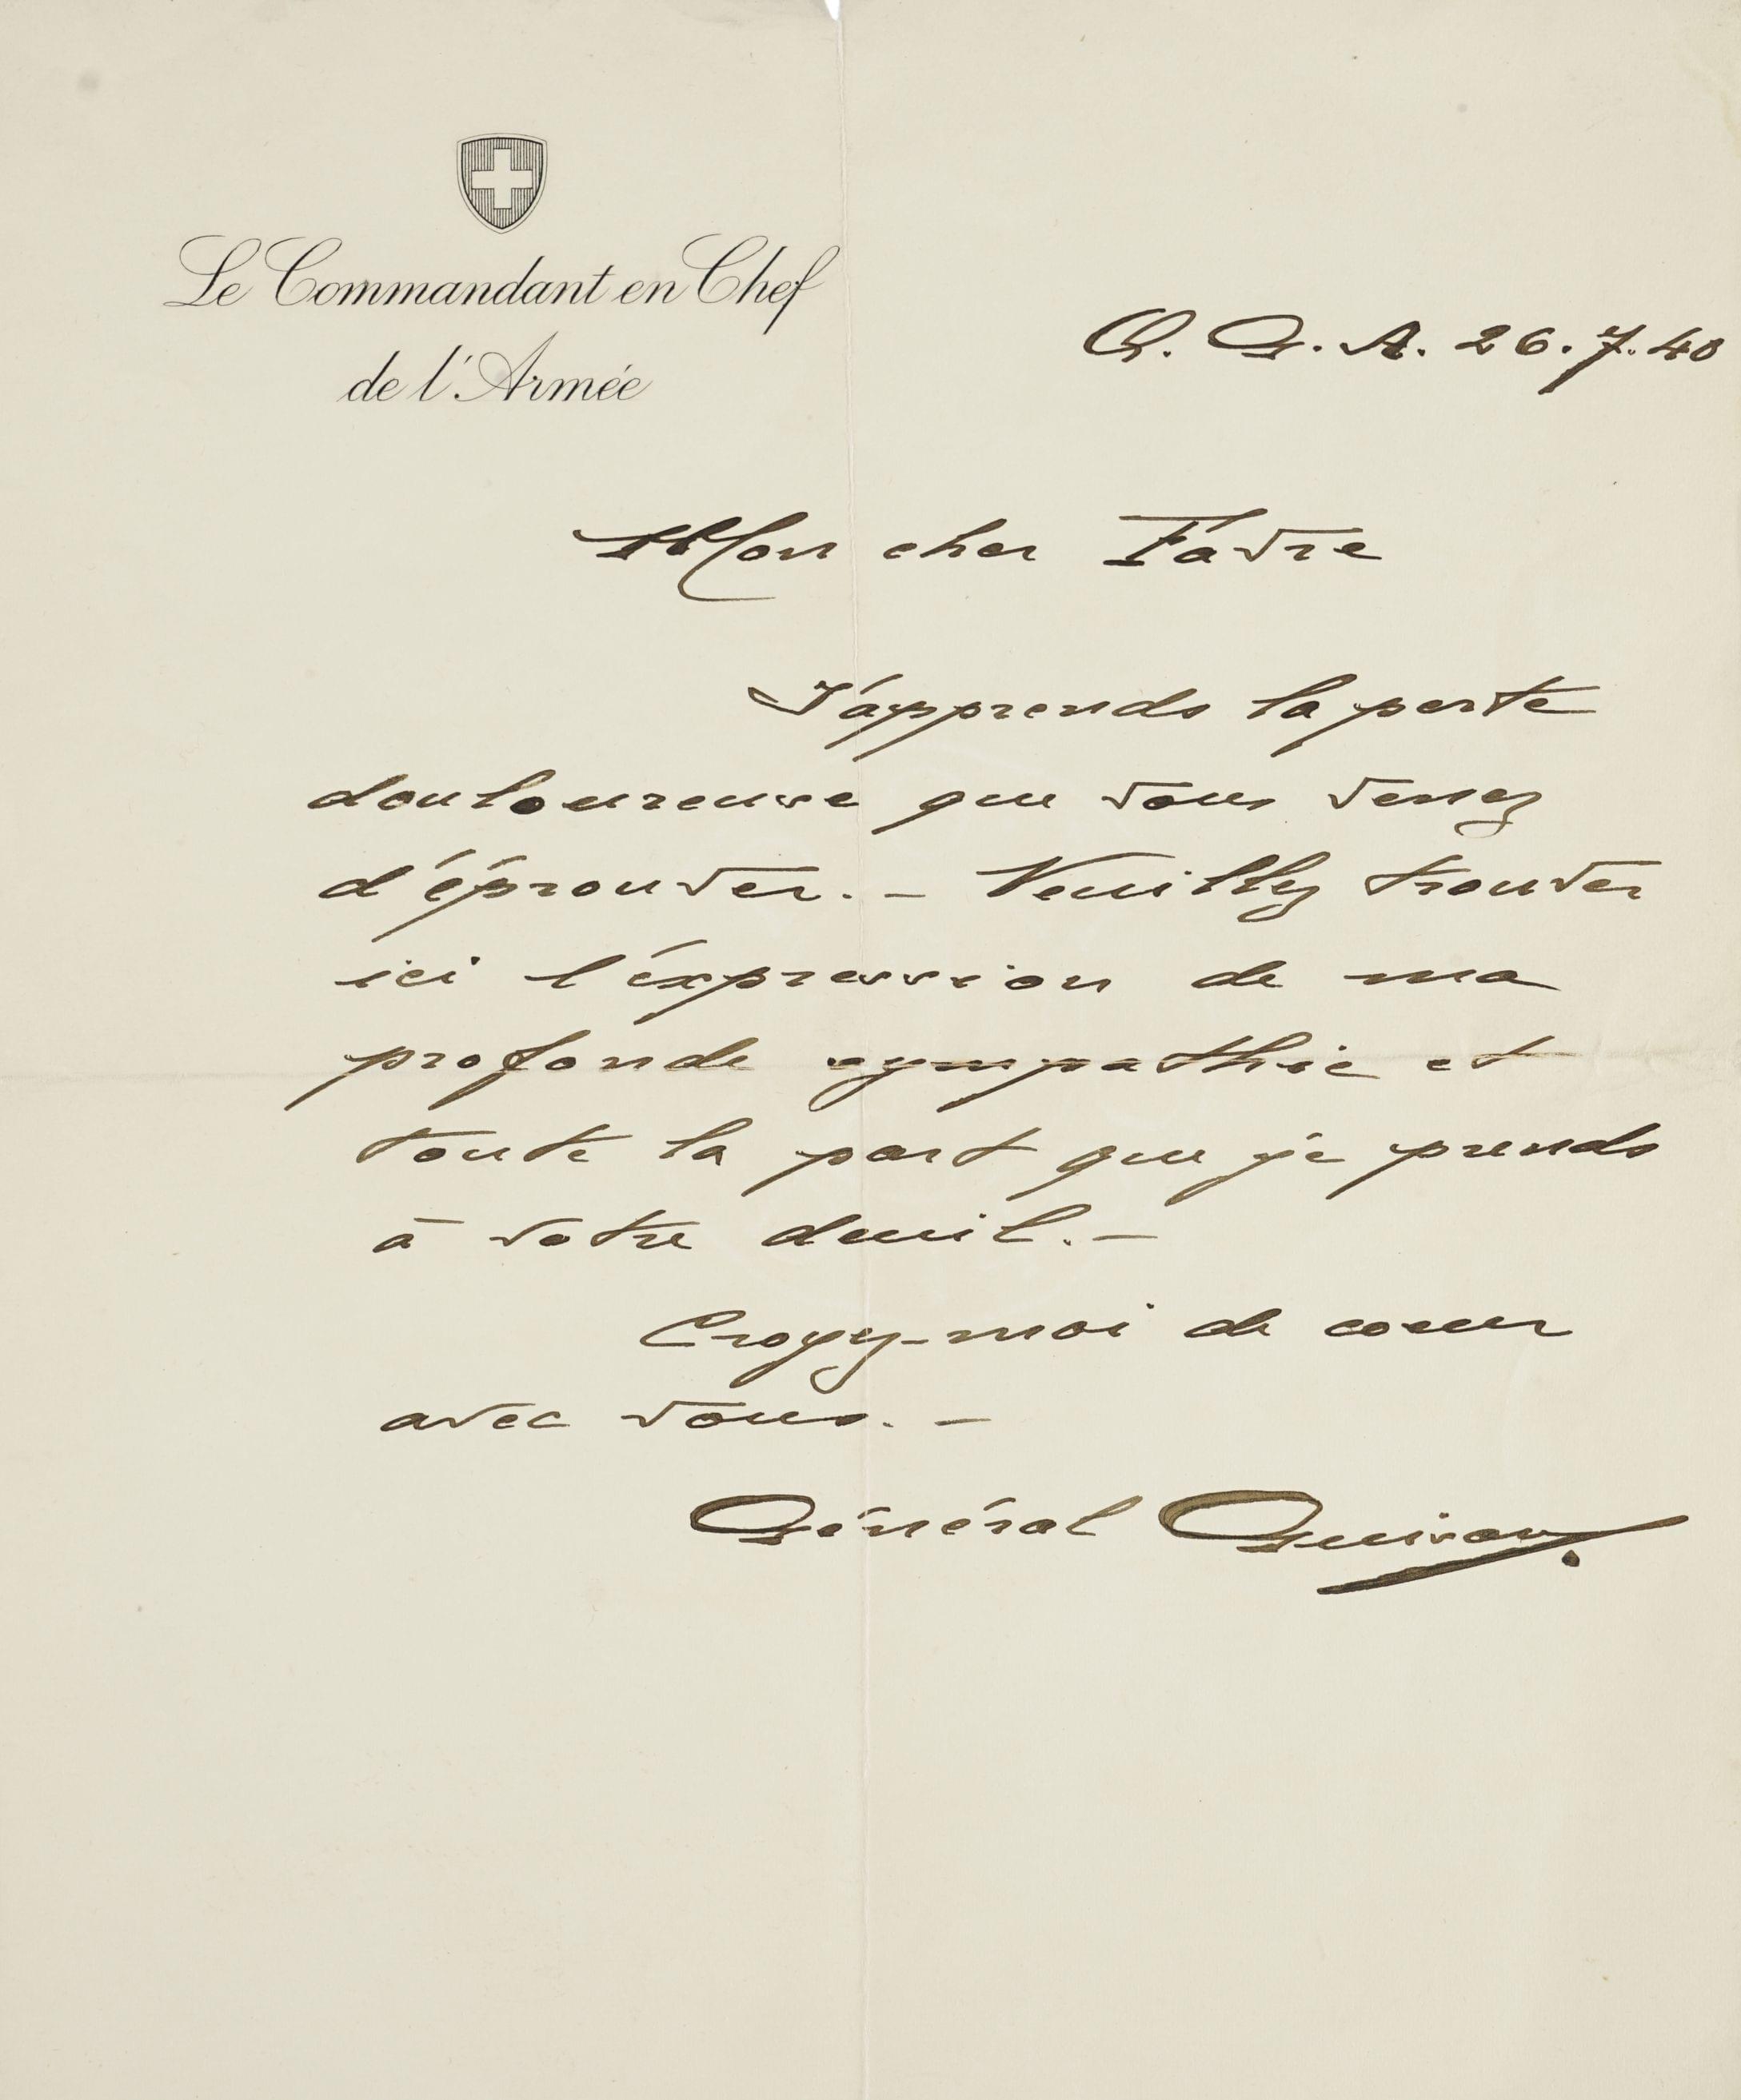 Le Commandant en Chef
de l'Armée
Q. G. A. 26.7.40
Mon cher Favre
J'apprends la perte
douloureuse que vous venez
d'éprouver. – Veuillez trouver
ici l'expression de ma
profonde sympathie et
toute la part que je prends
à votre deuil. –
Croyez-moi de coeur
avec vous. –
Général Guisan.